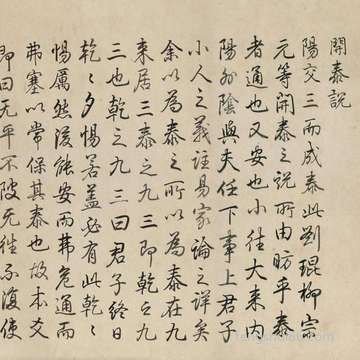 開泰說
陽交三而成泰此劉琨柳宗
元等開泰之說所由昉乎泰
者通也又安也小往大来内
陽外陰與夫任下事上君子
小人之義註易家論之詳矣
余以為泰之所以為泰在九
三泰之九三即乾之九
三也乾之九三曰君子終日
乾〻夕惕若蓋必有此乾〻
惕厲然後能安而弗危通而
弗塞以常保其泰也故本爻
即曰无平不陂无往不復使